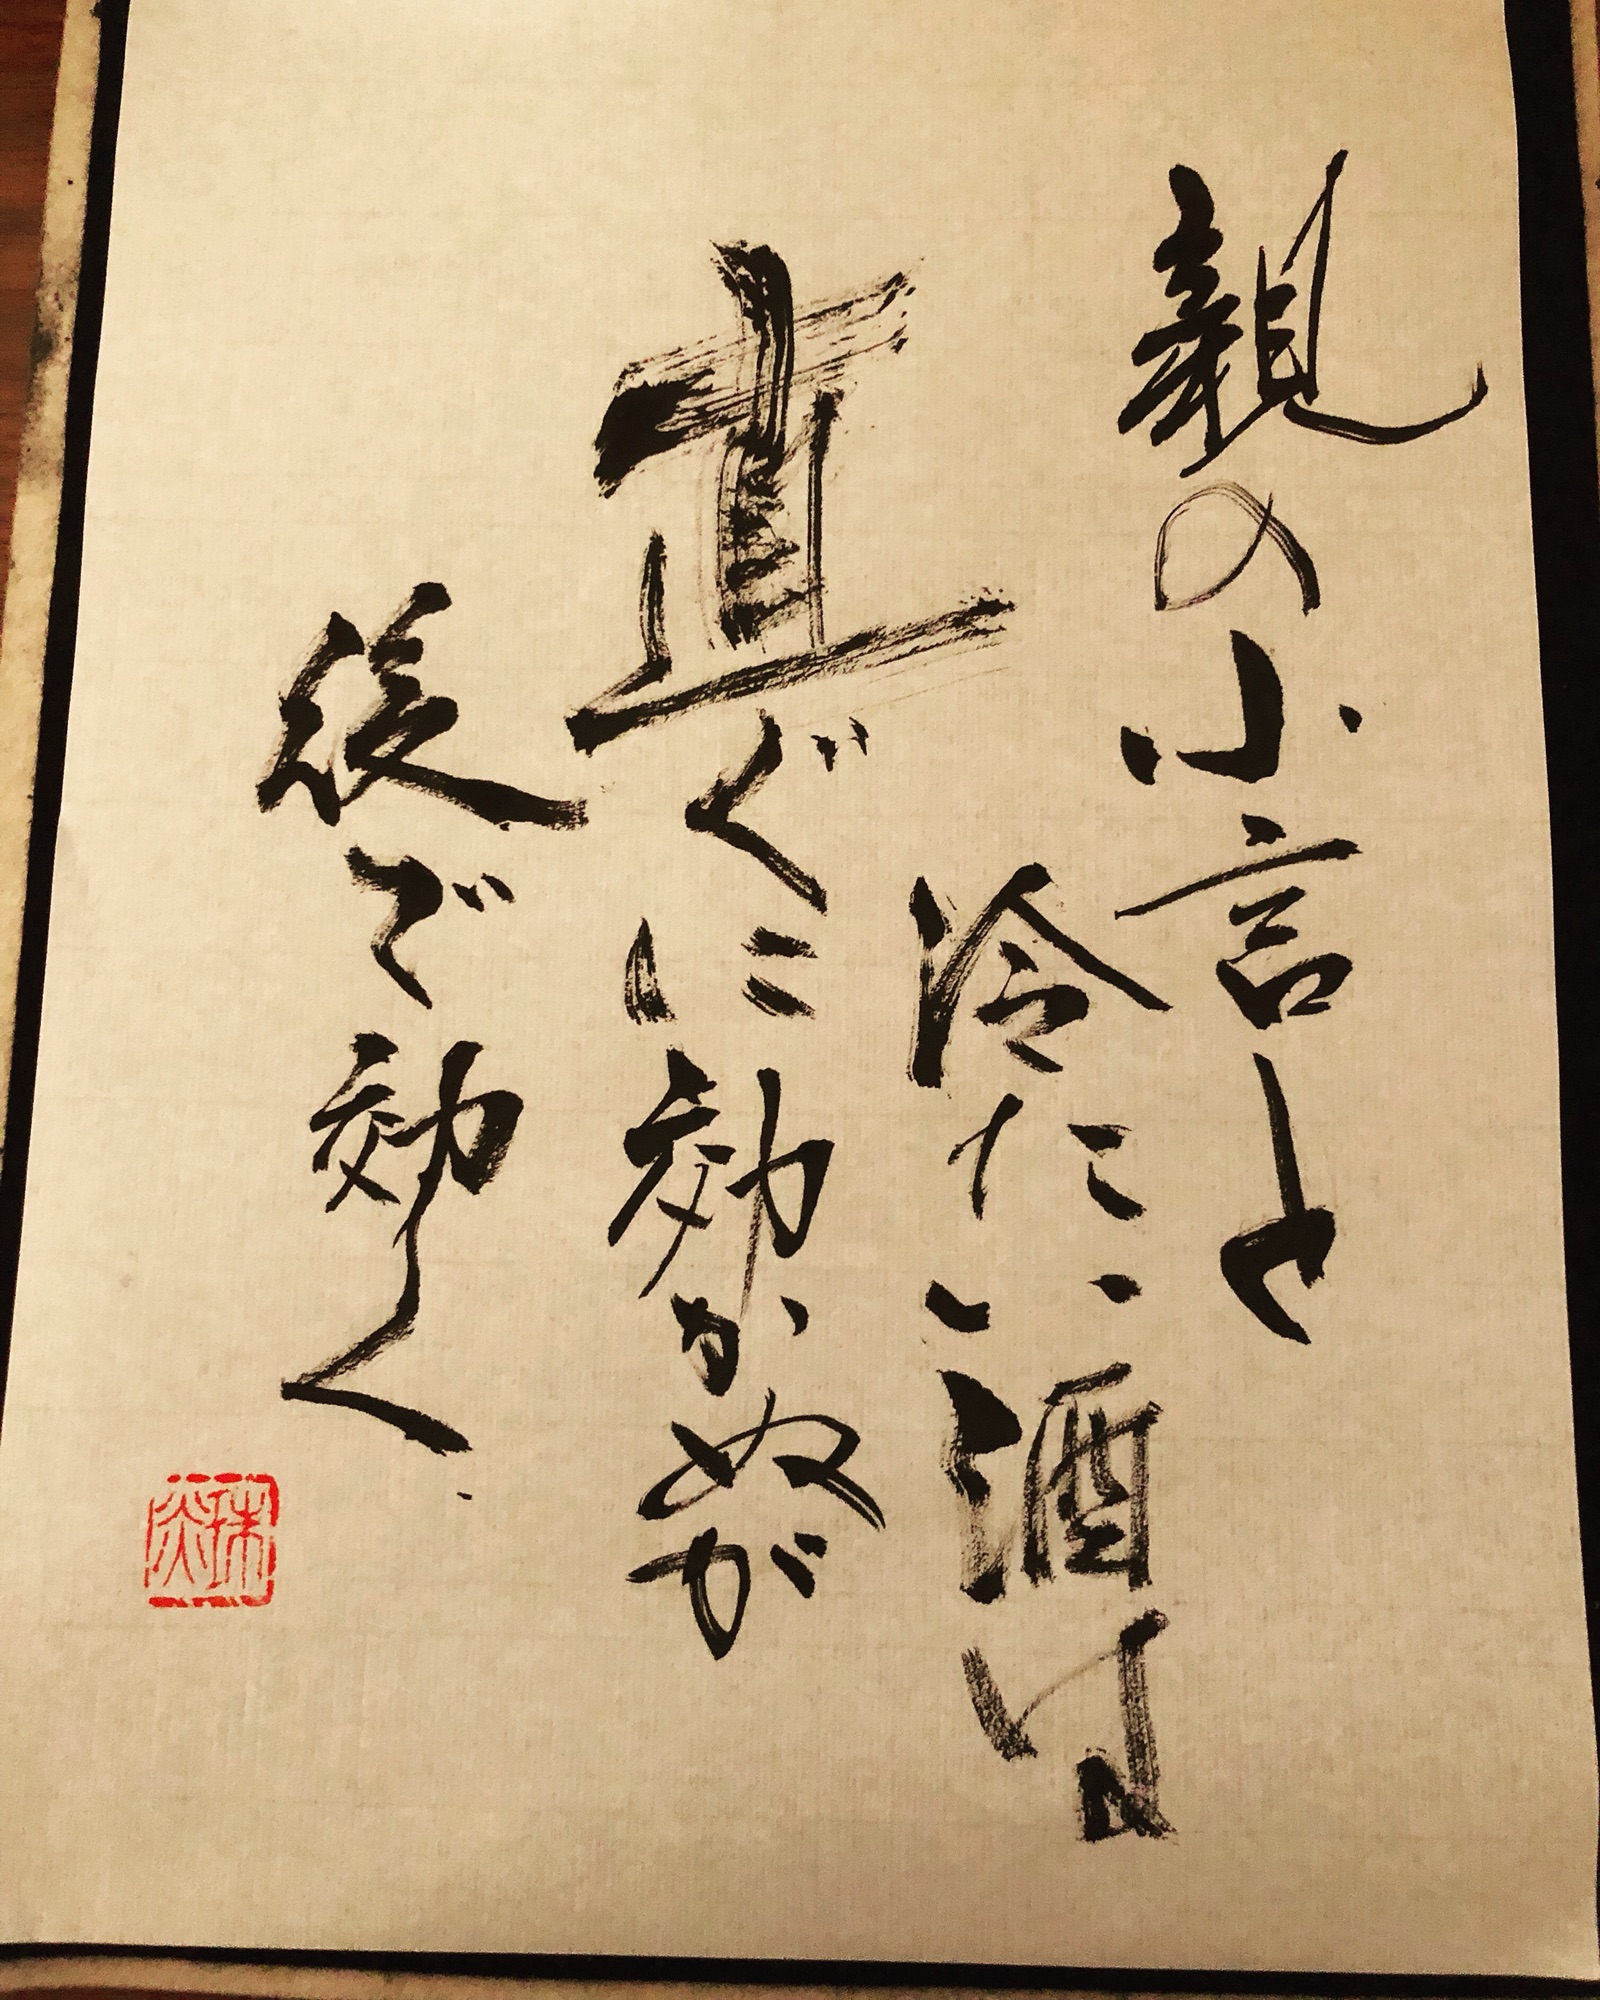 親の小言と
冷たい酒は
直ぐに効かぬが
後で効く